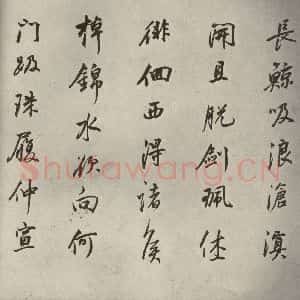 長鯨吸浪滄溟
開且脱劍珮休
徘徊西得諸侯
棹錦水欲向何
門趿珠履仲宣
Shufawang.CN